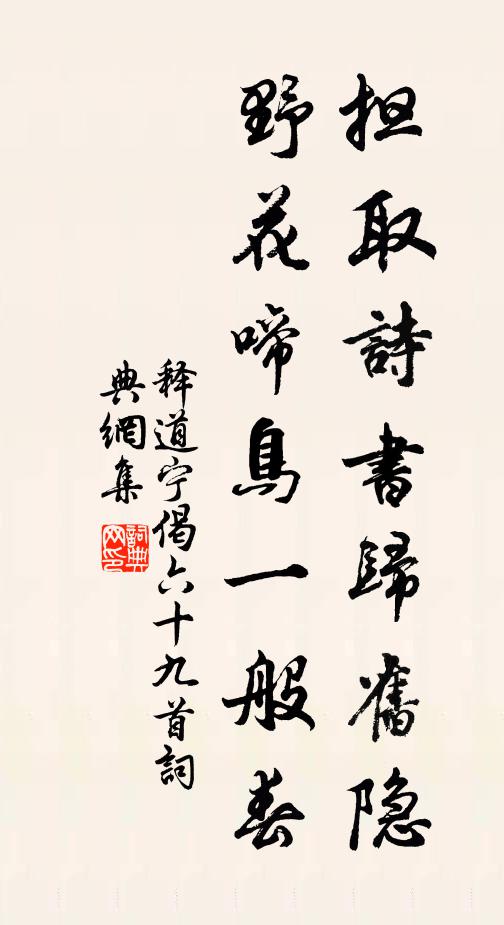 担取詩書歸舊隐
野花啼鳥一般春
释道宁偈六十九首詞
典網集
詞典
网印